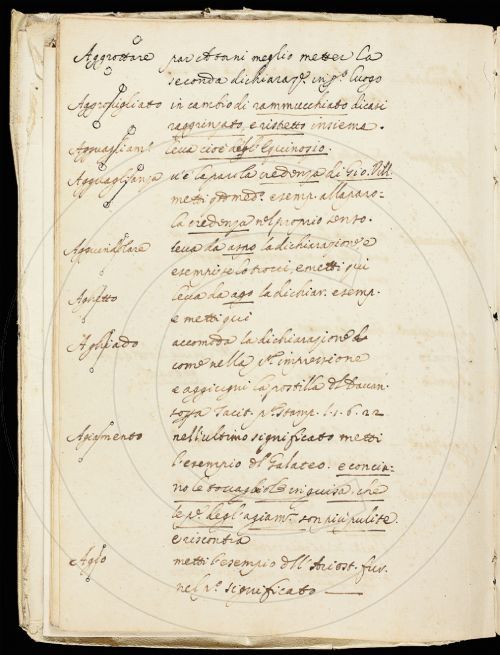 Aggrottare par ch stani meglio metter la
seconda dichiaraz.e in p.o luogo
in cambio di rammucchiato dicasi
raggrinzato, e ristretto insieme.
Agguagliam.o leva cioè degl'Equinozio.
Agguaglianza v'è la parola credenza di Gio. Vill.
metti esemp. alla paro=
la credenza nel proprio senso.
Agguindolare leva da aspo la dichiarazione e
esempi se lo trovi, e metti qui
Aghetto leva da ago la dichiar. esemp.
e metti qui
Aghiado accomoda la dichiarazione
come nella p.a impressione
e aggiugni la postilla d. Davan.
sopra Tacit. p.a Stamp. l. 1. 6. 22
Agiamento nell'ultimo significato metti
l'esempio d.l Galateo. e concia=
no le tovagliole in guisa, che
le p. degl'agiam.i son più pulite.
e riscontra
Aglio metti l'esempio dell'Ariost. fur.
nel p.o significato